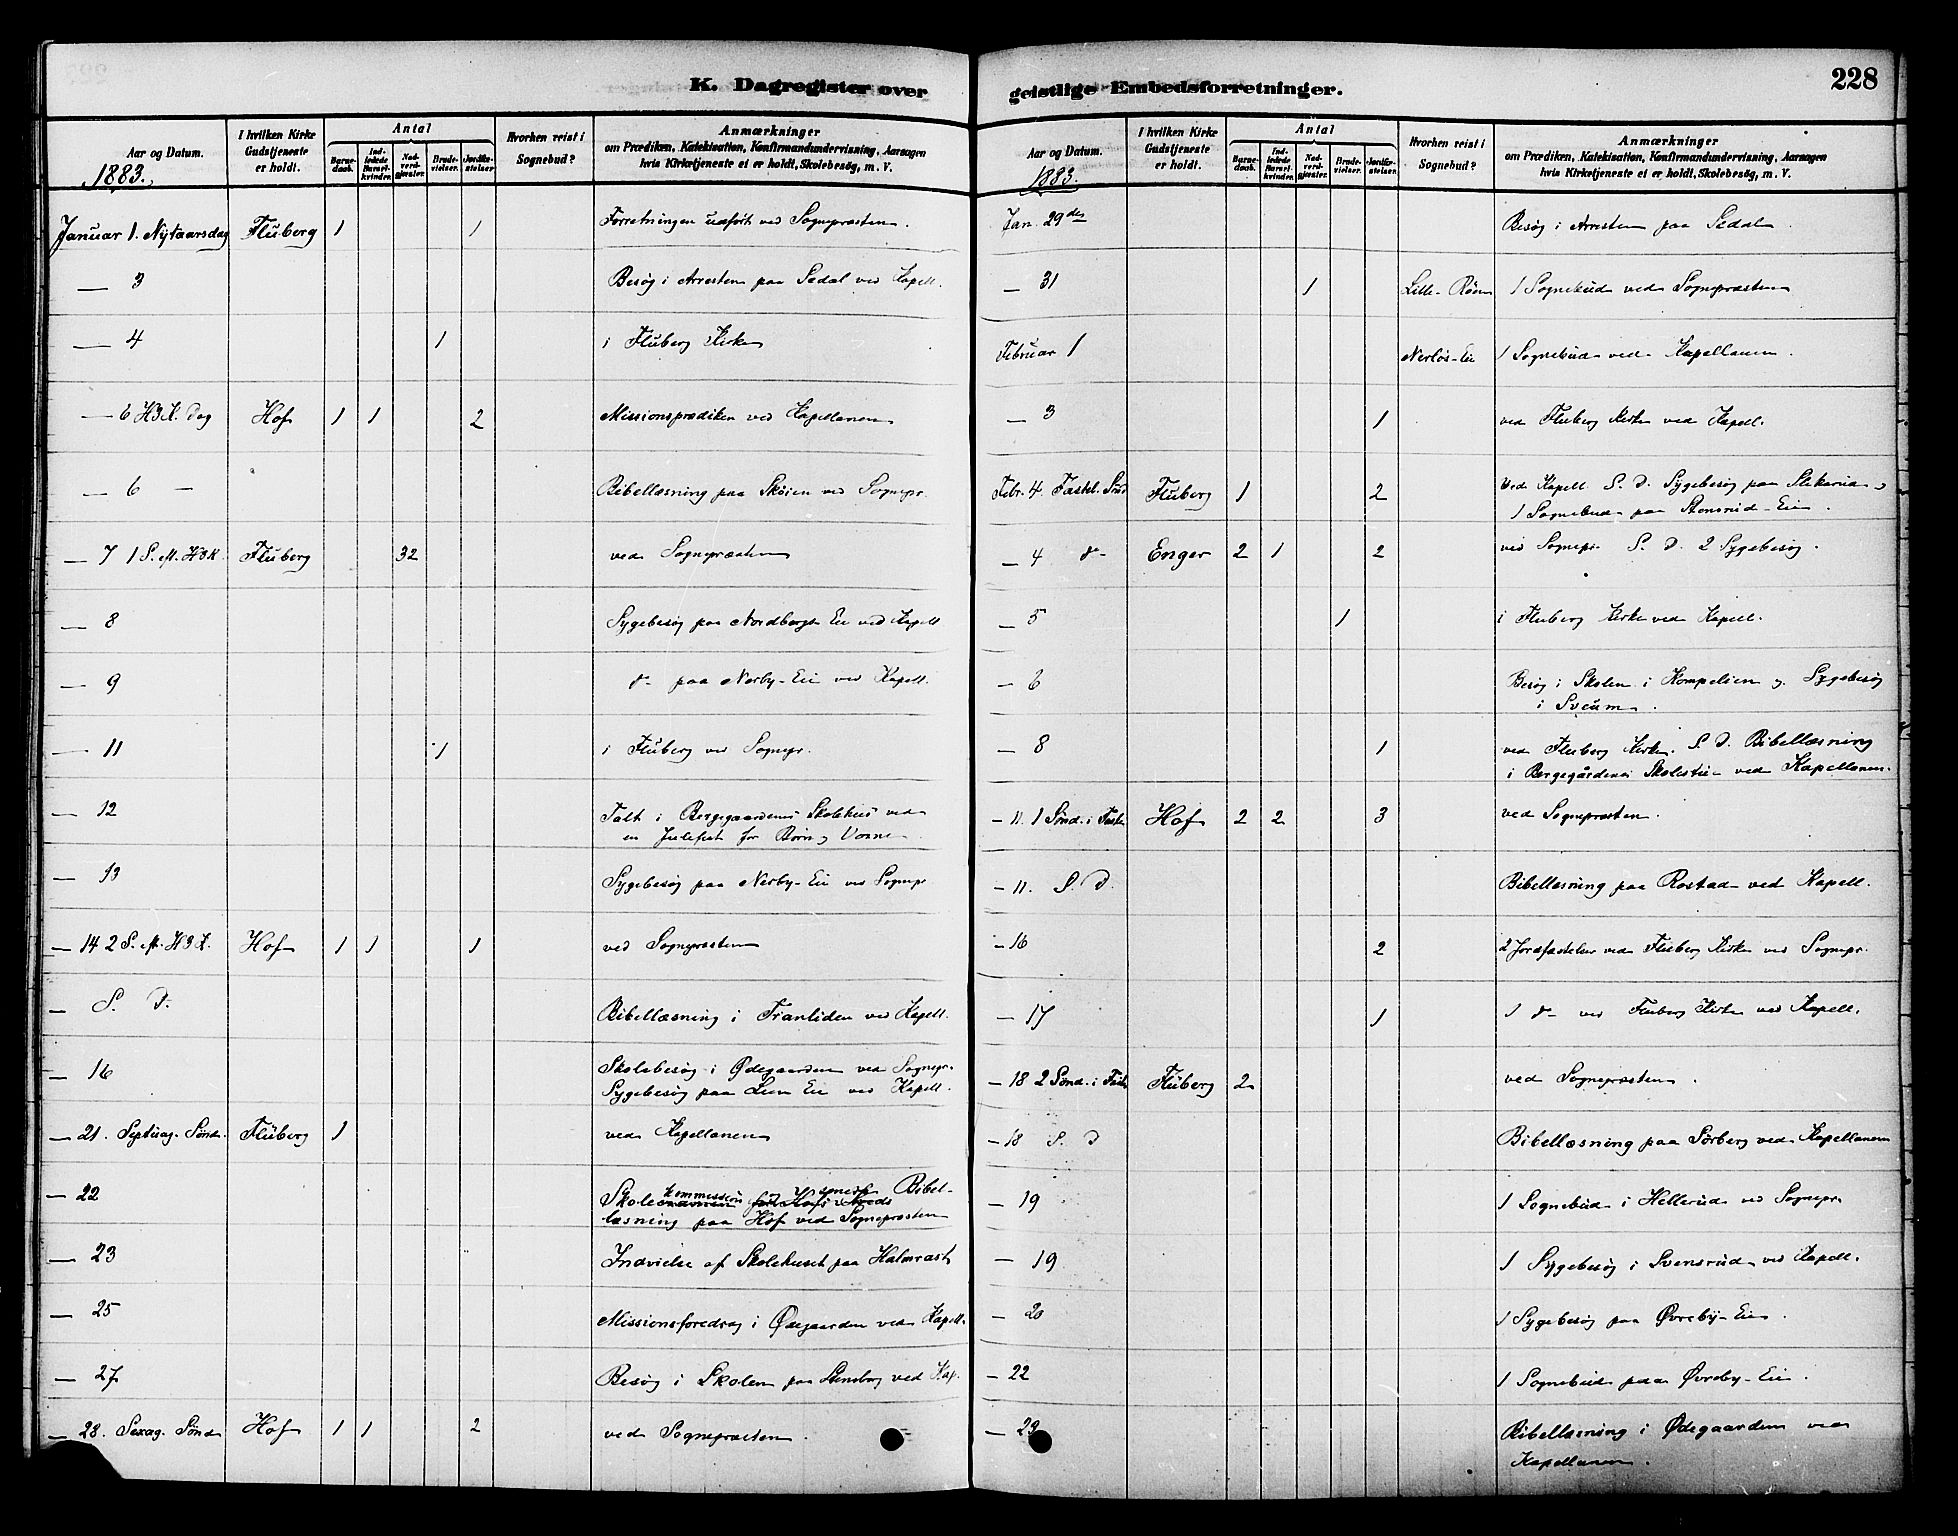 K. Dagregister over
Aar og Datum.
1883.
I hvilken Kirke Gudstjeneste er holdt.
Antal
Barnedaab.
Indledede Barselkvinder.
Nadverdgjæster.
Brudevielser.
Jordfæstelser.
Hvorhen reist i Sognebud?
Anmærkninger
om Prædiken, Katekisation, Konfirmandundervisning, Aarsagen
hvis Kirketjeneste ei er holdt, Skolebesøg, m. V.
Januar 1. Nytaarsdag Fluberg 1 1 Forretningen udført ved Sognepræsten.
— 3 Besøg i Arresten paa Sedal ved Kapell.
— 4 1 i Fluberg Kirke
— 6 H3K. Dag Hof 1 1 2 Missionsprædiken ved Kapellanen
— 6 — Bibellæsning paa Skøien ved Sognepr.
— 7 1 S. e. H3K. Fluberg 32 ved Sognepræsten
— 8 Sygebesøg paa Nordborgs Eie ved Kapell
— 9 do paa Nerby-Eie ved Kapell.
— 11 1 i Fluberg ved Sognepr.
— 12 Talt i Bergegaardenes Skolehus ved
en Julefest for Børn og Voxne
— 13 Sygebesøg paa Nerby-Eie ved Sognepr
— 14 2 S. e. H3K. Hof 1 1 1 ved Sognepræsten
— S. D. Bibellæsning i Tranliden ved Kapell.
— 16 Skolebesøg i Ødegaarden ved Sognepr.
Sygebesøg paa Lien Eie ved Kapell.
— 21. Septuag. Sønd. Fluberg 1 ved Kapellanen
— 22 Skolekommission Bibel-
læsning paa Hof ved Sognepræsten
— 23 Indvielse af Skolehuset paa Halmrast
— 25 Missionsforedrag i Ødegaarden ved Kapell.
— 27 Besøg i Skolen paa Stensborg ved Kap.
— 28. Sexag. Sønd Hof 1 1 2 ved Sognepræsten.
geistlige Embedsforretninger.
228
Aar og Datum.
1883.
I hvilken Kirke Gudstjeneste er holdt.
Antal
Barnedaab.
Indledede Barselkvinder.
Nadverdgjæster.
Brudevielser.
Jordfæstelser.
Hvorhen reist i Sognebud?
Anmærkninger
om Prædiken, Katekisation, Konfirmandundervisning, Aarsagen
hvis Kirketjeneste ei er holdt, Skolebesøg, m. V.
Jan. 29des Besøg i Arresten paa Sedal.
— 31 1 Lille-Røen 1 Sognebud ved Sognepræsten
Februar 1 Nerløs-Eie 1 Sognebud ved Kapellanen.
— 3 1 ved Fluberg Kirke ved Kapell.
Febr. 4. Fastel. Sønd Fluberg 1 2 ved Kapell. S. D. Sygebesøg paa og
1 Sognebud paa Stensrud-Eie.
— 4 do Enger 2 1 2 ved Sognepr. S. D. 2 Sygebesøg.
— 5 1 i Fluberg Kirke ved Kapell.
— 6 Besøg i Skolen i Kompelien og Sygebesøg
i Sveum.
— 8 1 ved Fluberg Kirke. S. D. Bibellæsning
i Bergegårdenes ved Kapellanen.
— 11. 1 Sønd. i Faste Hof 2 2 3 ved Sognepræsten.
— 11. S. D. Bibellæsning paa Rostad ved Kapell.
— 16 2 2 Jordfæstelser ved Fluberg Kirke ved Sognepr.
— 17 1 1 do ved Fluberg Kirke ved Kapell.
— 18 2 Sønd. i Faste Fluberg 2 ved Sognepræsten.
— 18 S. D Bibellæsning paa Sørberg ved Kapellanen
— 19 1 Sognebud i Hellerud ved Sognepr.
— 19 1 Sygebesøg i Svensrud ved Kapell.
— 20 1 Sygebesøg paa Øvreby-Eie.
— 22 1 Sognebud paa Øvreby-Eie.
— 23 Bibellæsning i Ødegaarden ved
Kapellanen.